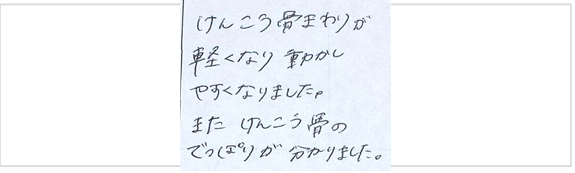 けんこう骨まわりが
軽くなり動かし
やすくなりました。
また けんこう骨の
でっぱりが 分かりました。